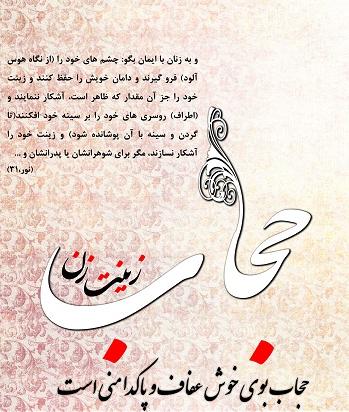 و به زنان با ایمان بگو: چشم های خود را (از نگاه هوس
آلود) فرو گیرند و دامان خویش را حفظ کنند و زینت
خود را جز آن مقدار که ظاهر است، آشکار ننمایند و
(اطراف) روسری های خود را بر سینه خود افکنند(تا
گردن و سینه با آن پوشانده شود) و زینت خود را
آشکار نسازند، مگر برای شوهرانشان یا پدرانشان و ...
(نور،۳۱)
حجاب
زینت زن
حجاب بوی خوش عفاف و پاکدامنی است